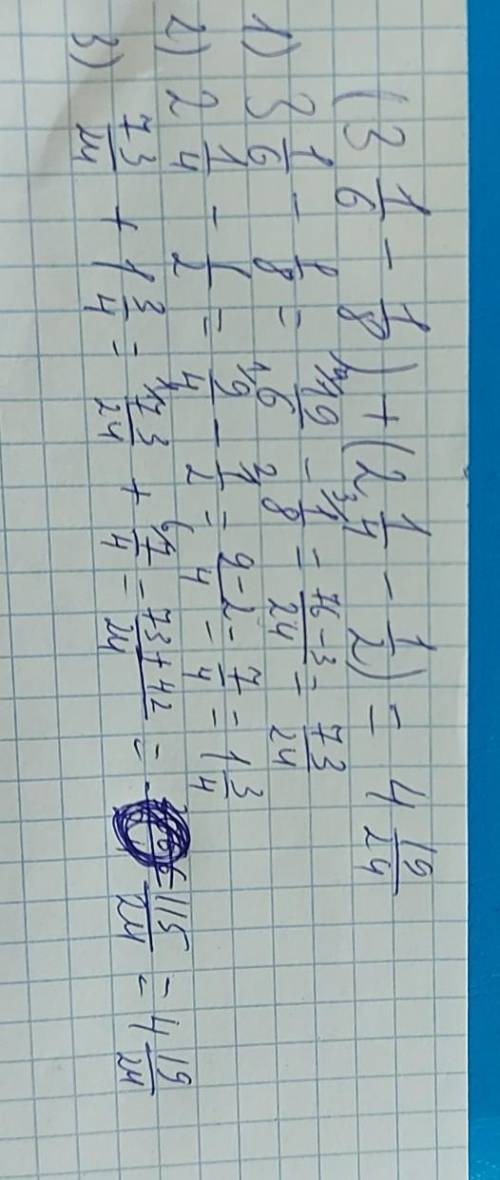 (3 1/6 - 1/8) + (2 1/4 - 1/2) = 4 19/24
1) 3 1/6 - 1/8 = 19/6 - 1/8 = 76-3/24 = 73/24
2) 2 1/4 - 1/2 = 9/4 - 1/2 = 9-2/4 = 7/4 = 1 3/4
3) 73/24 + 1 3/4 = 73/24 + 7/4 = 73+42/24 = 115/24 = 4 19/24